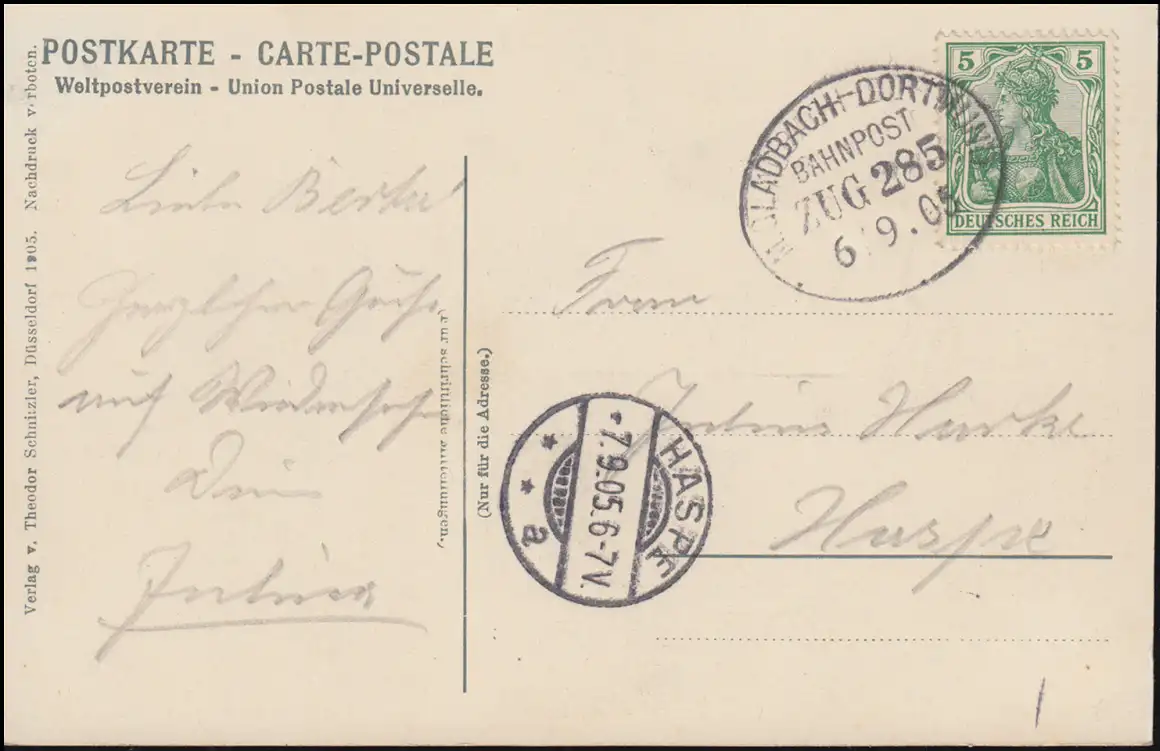 POSTKARTE - CARTE-POSTALE
Weltpostverein - Union Postale Universelle.
Verlag v. Theodor Schnitzler, Düsseldorf 1905. Nachdruck verboten.
5 5
DEUTSCHES REICH
M.GLADBACH-DORTMUND
BAHNPOST
ZUG 285
6.9.05
Liebe
Herzlichen
auf Wiedersehn
Dein
Julius
schriftliche Mitteilungen.)
(Nur für die Adresse.)
Frau
Julius Harke
Haspe
HASPE
*7.9.05.6-7V.
* *
a